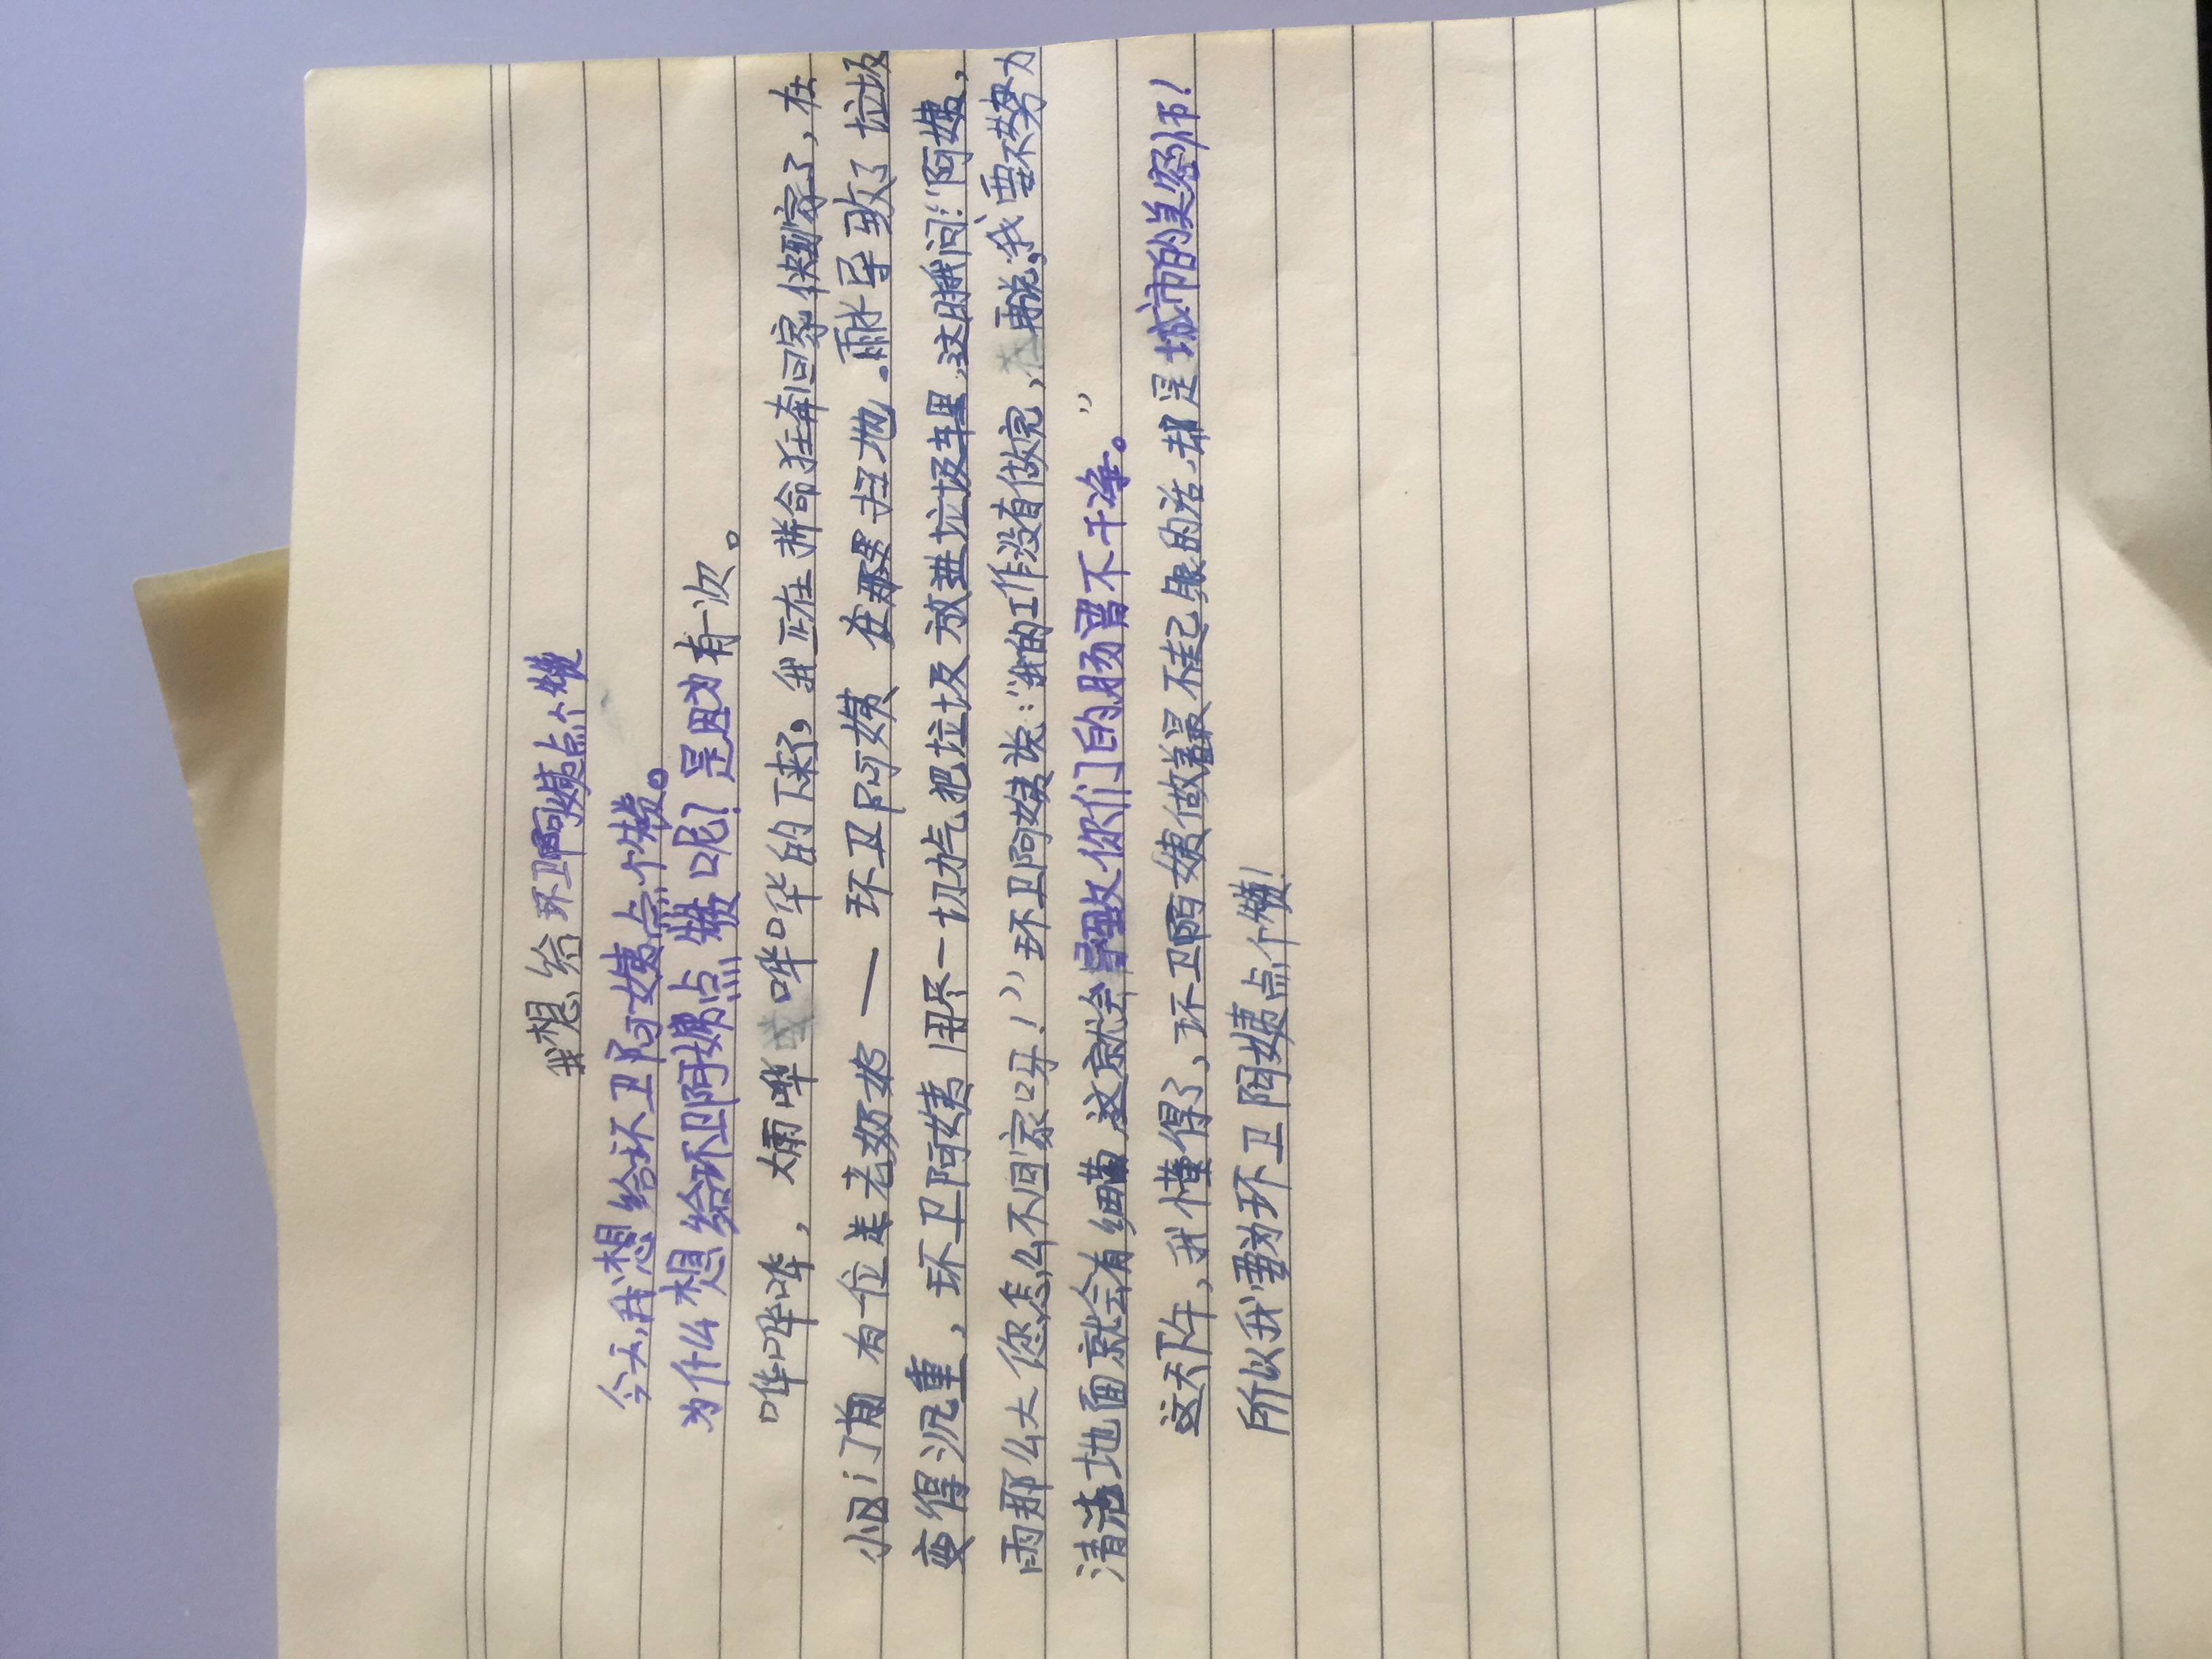 我想给环卫阿姨点个赞
今天,我想给环卫阿姨点个赞。
为什么想给环卫阿姨点赞呢?是因为有一次。
哗哗哗,大雨哗哗哗的下来了,我正在拼命狂奔回家快到家了,在
小区门前有一位老奶奶——环卫阿姨在那里扫地。雨水导致了垃圾
变得沉重,环卫阿姨用尽一切力气把垃圾放进垃圾车里,这时我问:“阿姨,
雨那么大您怎么不回家呀!”环卫阿姨说:“我的工作没有做完,再说,我要不努力
清洁地面就会有细菌,这就会导致你们的肠胃不干净。”
这天下午,我懂得了,环卫阿姨做着最不起眼的活,却是城市的美容师!
所以我要为环卫阿姨点个赞!